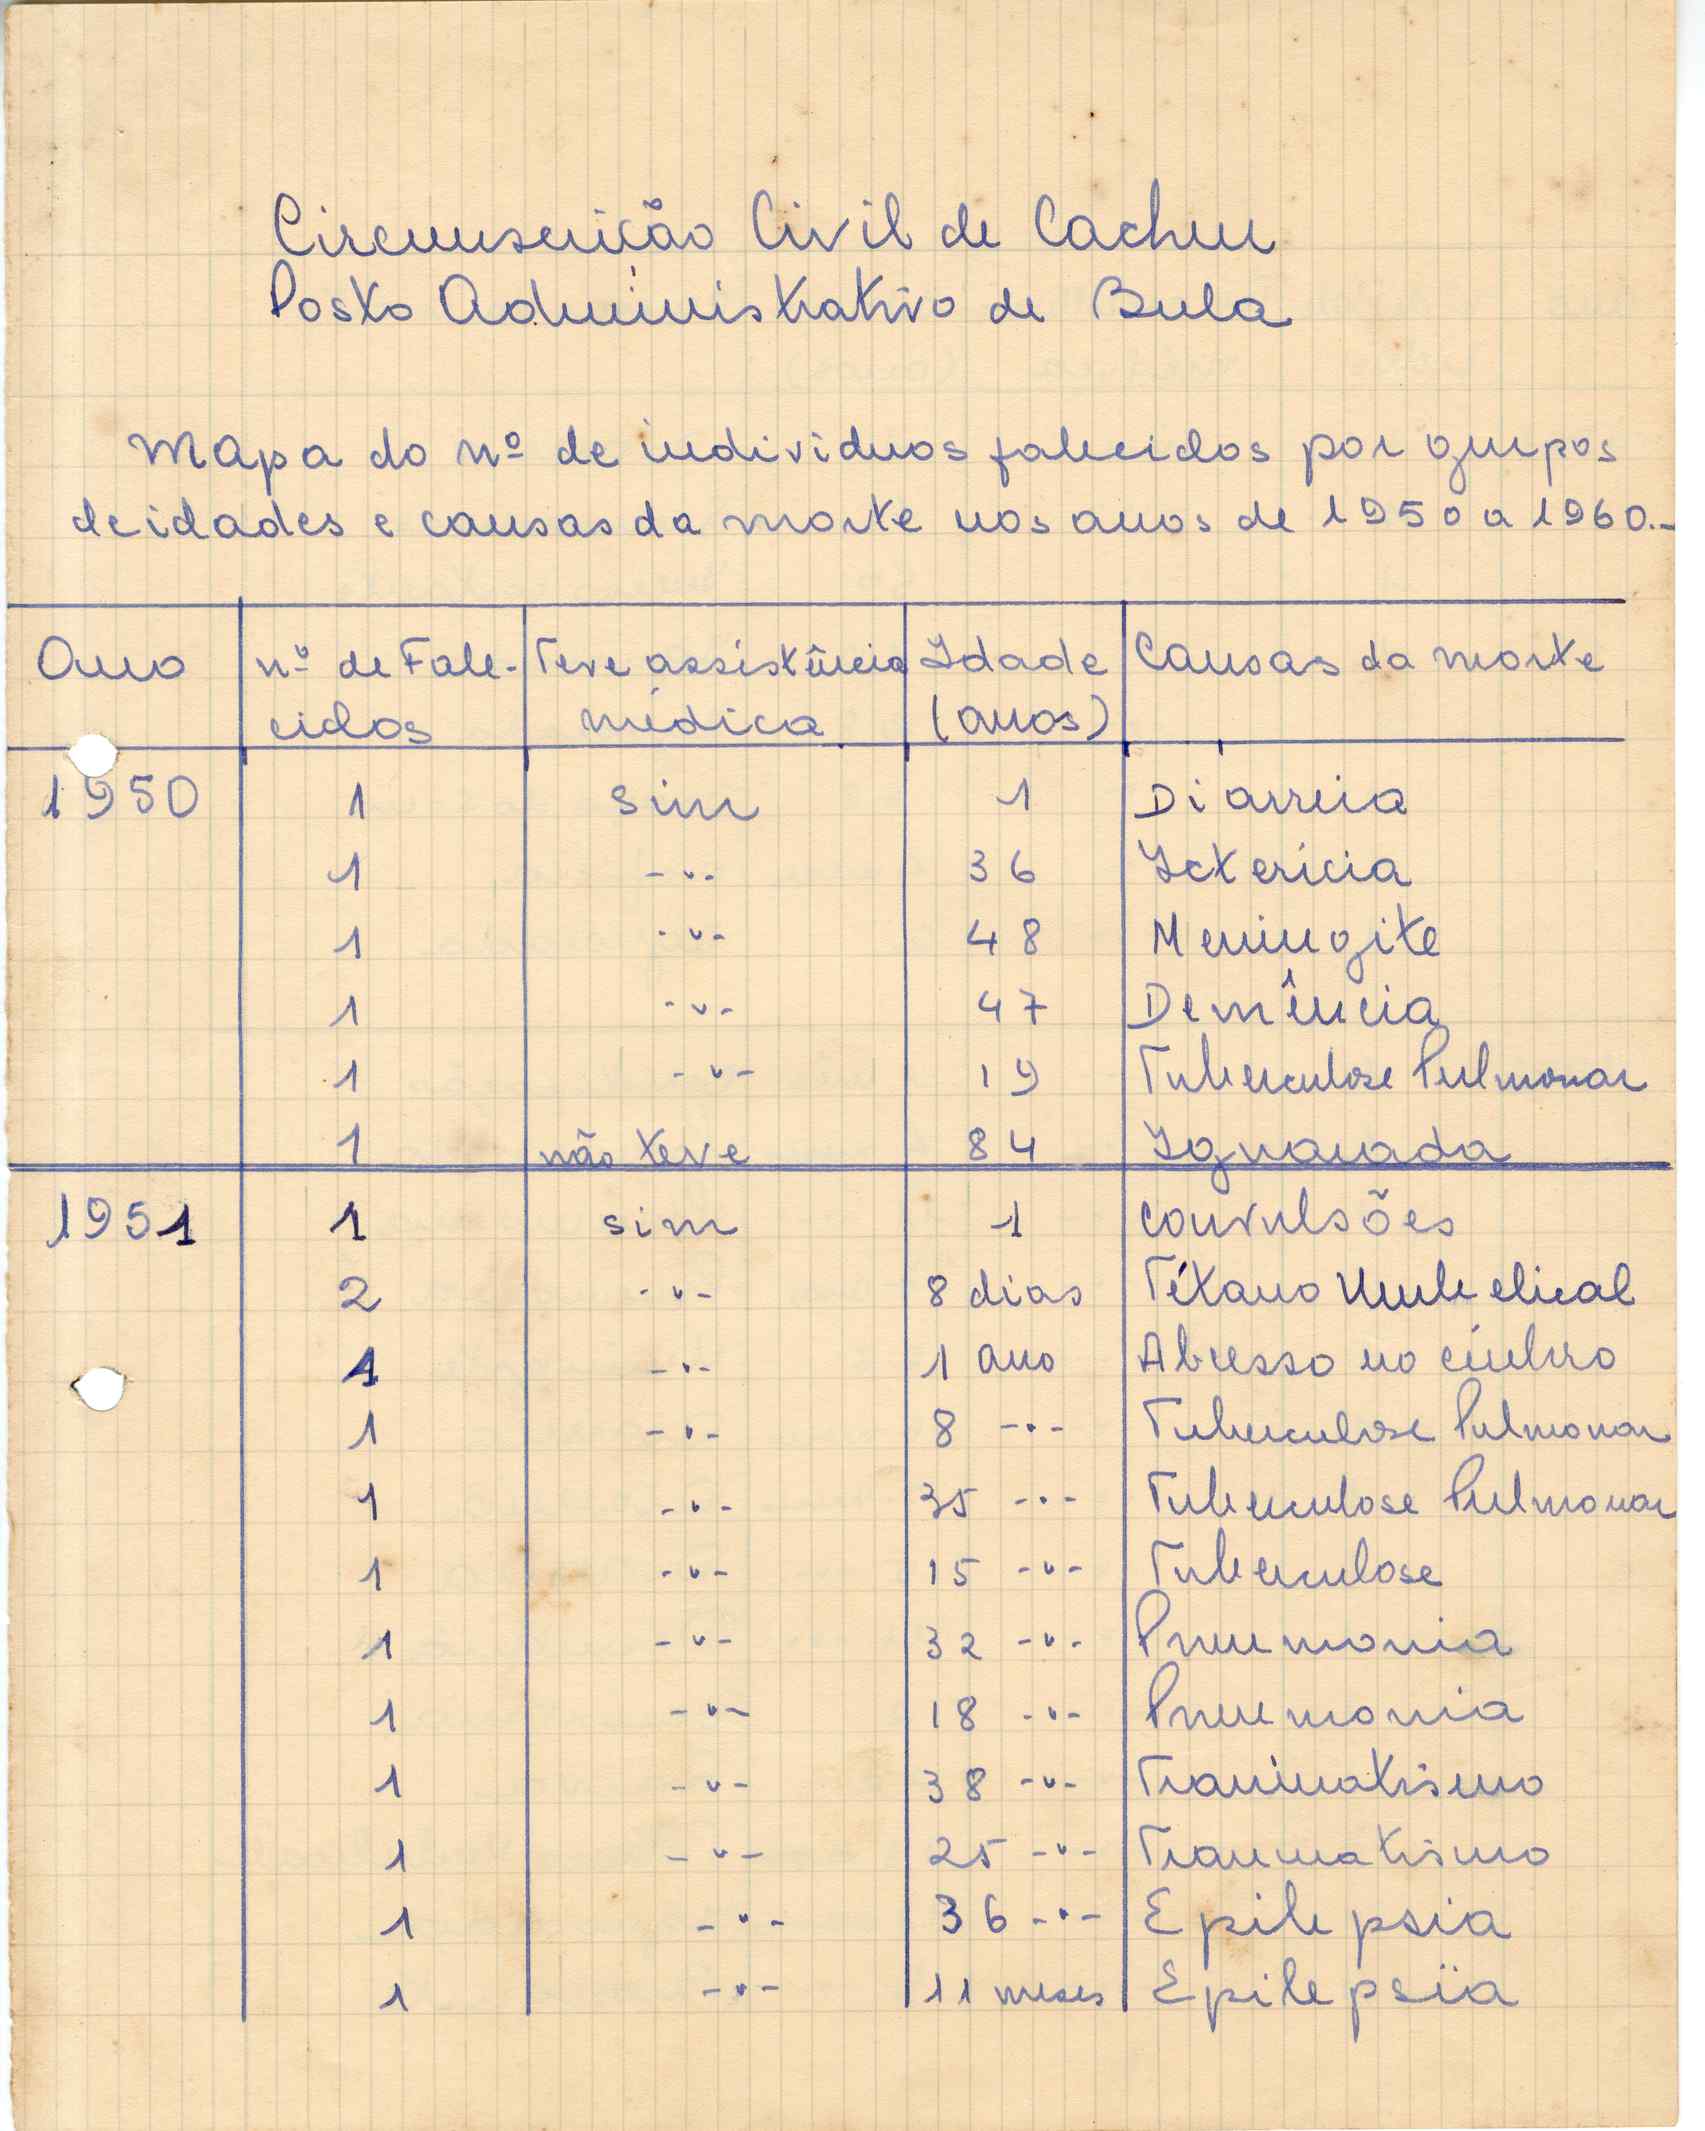 Circunscrição Civil de Cacheu
Posto Administrativo de Bula
Mapa do nº de individuos falecidos por grupos
de idades e causas da morte nos anos de 1950 a 1960.-
Ano nº de Fale- Teve assistência Idade Causas da morte
cidos médica (anos)
1950 1 sim 1 Diarreia
1 -"- 36 Ictericia
1 -"- 48 Meningite
1 -"- 47 Demência
1 -"- 19 Tuberculose Pulmonar
1 não teve 84 Ignorada
1951 1 sim 1 convulsões
2 -"- 8 dias Tétano Umbelical
1 -"- 1 ano Abcesso no
1 -"- 8 -"- Tuberculose Pulmonar
1 -"- 35 -"- Tuberculose Pulmonar
1 -"- 15 -"- Tuberculose
1 -"- 32 -"- Pneumonia
1 -"- 18 -"- Pneumonia
1 -"- 38 -"- Traumatismo
1 -"- 25 -"- Traumatismo
1 -"- 36 -"- Epilepsia
1 -"- 11 meses Epilepsia